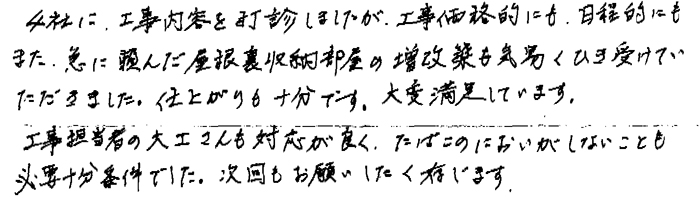 4社に、工事内容を打診しましたが、工事価格的にも、日程的にも
また、急に頼んだ屋根裏収納部屋の増改築も気易くひき受けてい
ただきました。仕上がりも十分です。大変満足しています。
工事担当者の大工さんも対応が良く、たばこのにおいがしないことも
必要十分条件でした。次回もお願いしたく存じます。